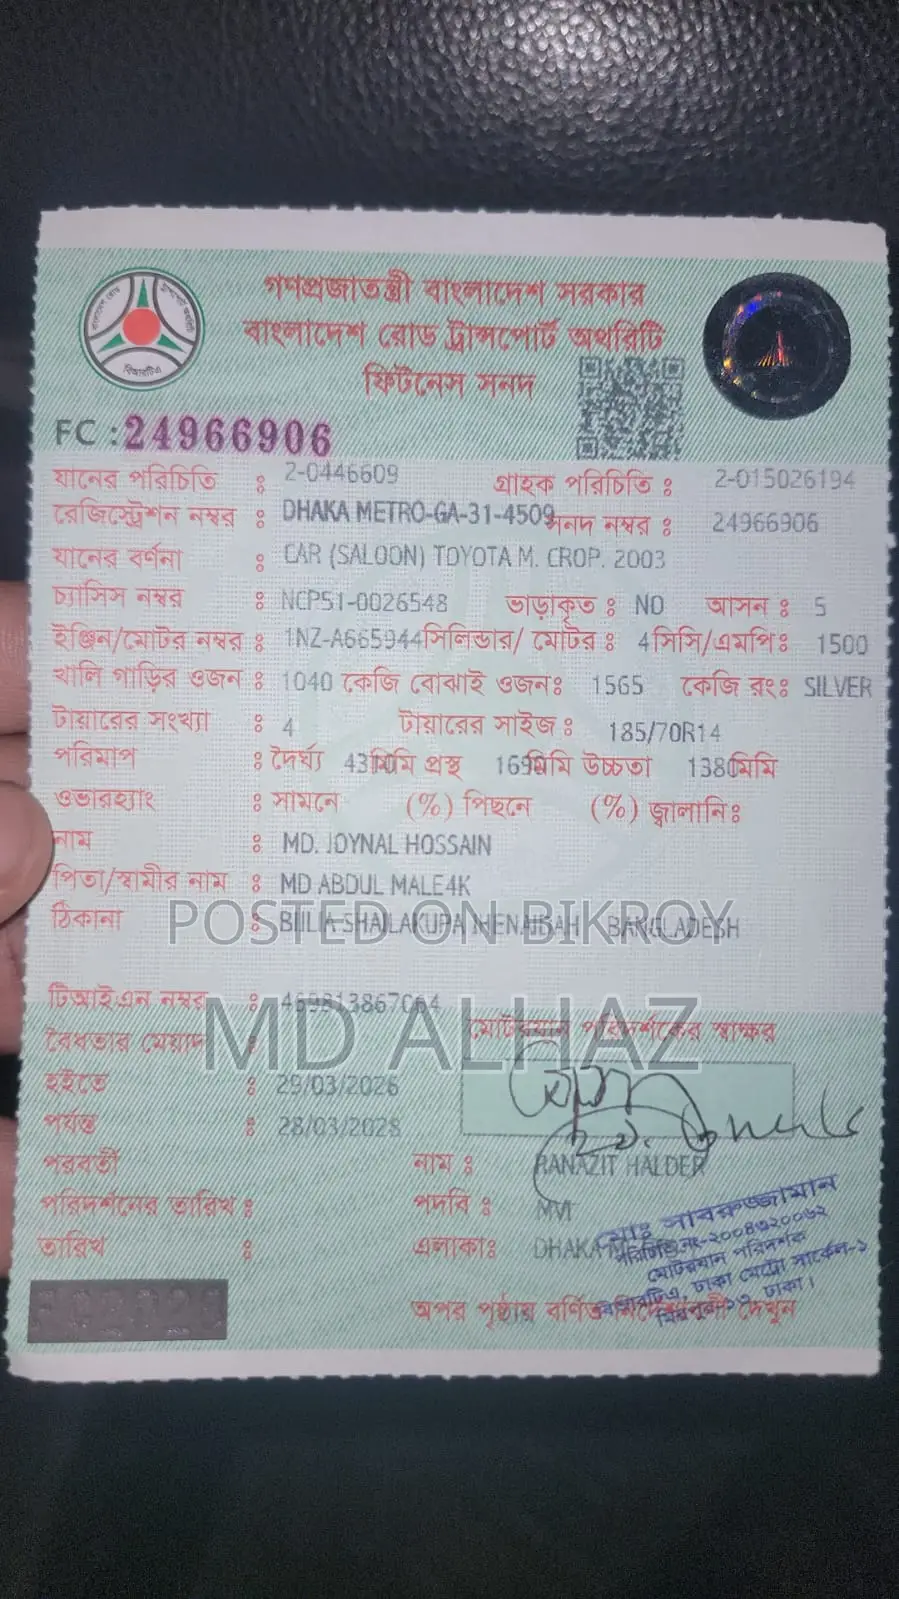 গণপ্রজাতন্ত্রী বাংলাদেশ সরকার
বাংলাদেশ রোড ট্রান্সপোর্ট অথরিটি
ফিটনেস সনদ
বিআরটিএ
FC : 24966906
যানের পরিচিতি : 2-0446609 গ্রাহক পরিচিতি : 2-015026194
রেজিস্ট্রেশন নম্বর : DHAKA METRO-GA-31-4509 সনদ নম্বর : 24966906
যানের বর্ণনা : CAR (SALOON) TOYOTA M. CROP. 2003
চ্যাসিস নম্বর : NCP51-0026548 ভাড়াকৃত : NO আসন : 5
ইঞ্জিন/মোটর নম্বর : 1NZ-A665944 সিলিন্ডার/ মোটর : 4 সিসি/এমপি : 1500
খালি গাড়ির ওজন : 1040 কেজি বোঝাই ওজন : 1565 কেজি রং : SILVER
টায়ারের সংখ্যা : 4 টায়ারের সাইজ : 185/70R14
পরিমাপ : দৈর্ঘ্য মিমি প্রস্থ মিমি উচ্চতা 1380 মিমি
ওভারহ্যাং : সামনে (%) পিছনে (%) জ্বালানি :
নাম : MD. JOYNAL HOSSAIN
পিতা/স্বামীর নাম : MD ABDUL MALE4K
ঠিকানা : SHAILAKUPA JHENAIDAH BANGLADESH
POSTED ON BIKROY
টিআইএন নম্বর : 469813867064
MD ALHAZ
মোটরযান পরিদর্শকের স্বাক্ষর
বৈধতার মেয়াদ :
হইতে : 29/03/2026
পর্যন্ত : 28/03/2028
পরবর্তী নাম : RANAZIT HALDER
পরিদর্শনের তারিখ : পদবি : MVI
তারিখ : এলাকা : DHAKA
মোঃ সাবরুজ্জামান
মোটরযান পরিদর্শক
বিআরটিএ, ঢাকা মেট্রো সার্কেল-১
অপর পৃষ্ঠায় বর্ণিত দেখুন